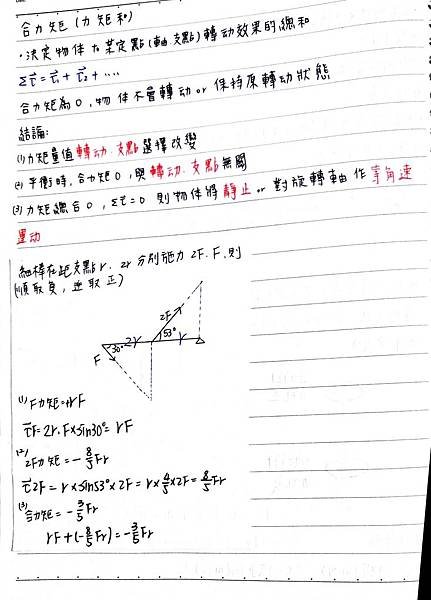 合力矩(力矩和)
·決定物體在某定點(軸.支點)轉動效果的總和
Στ⃗=τ⃗₁+τ⃗₂+....
合力矩為0,物體不會轉動or保持原轉動狀態
結論:
(1)力矩量值轉动.支點選擇改變
(2)平衡時,合力矩0,與轉动.支點無關
(3)力矩總合0,Στ⃗=0 則物體將靜止or對旋轉軸作等角速
運动
細棒在距支點r.2r分別施力2F.F.則
(順取負,逆取正)
2F
F 30° 2r 53° r
(1)F力矩=+rF
τ⃗F=2r.F×sin30°=rF
(2)
2F力矩=-8/5Fr
τ⃗2F=r×sin53°×2F=r×4/5×2F=8/5Fr
(3)
合力矩=-3/5Fr
rF+(-8/5Fr)=-3/5Fr